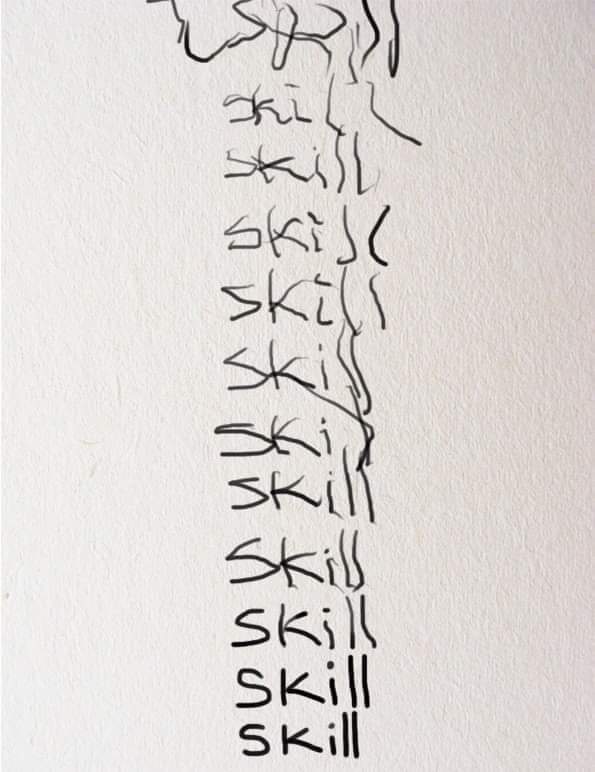 Ski
Skill
Ski
Ski
Ski
Ski
Skill
Skill
Skill
Skill
Skill